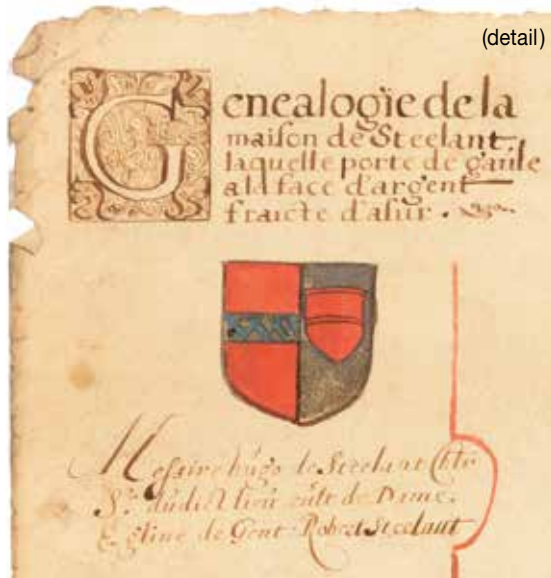 (detail)
Genealogie de la
maison de Steelant,
laquelle porte de gaule
a la face d'argent
fraicte d'asur.
Messire hugo de Steelant Chlr
Sr. dudict lieu eult de Dame
Egline de Gent Robert Steelant